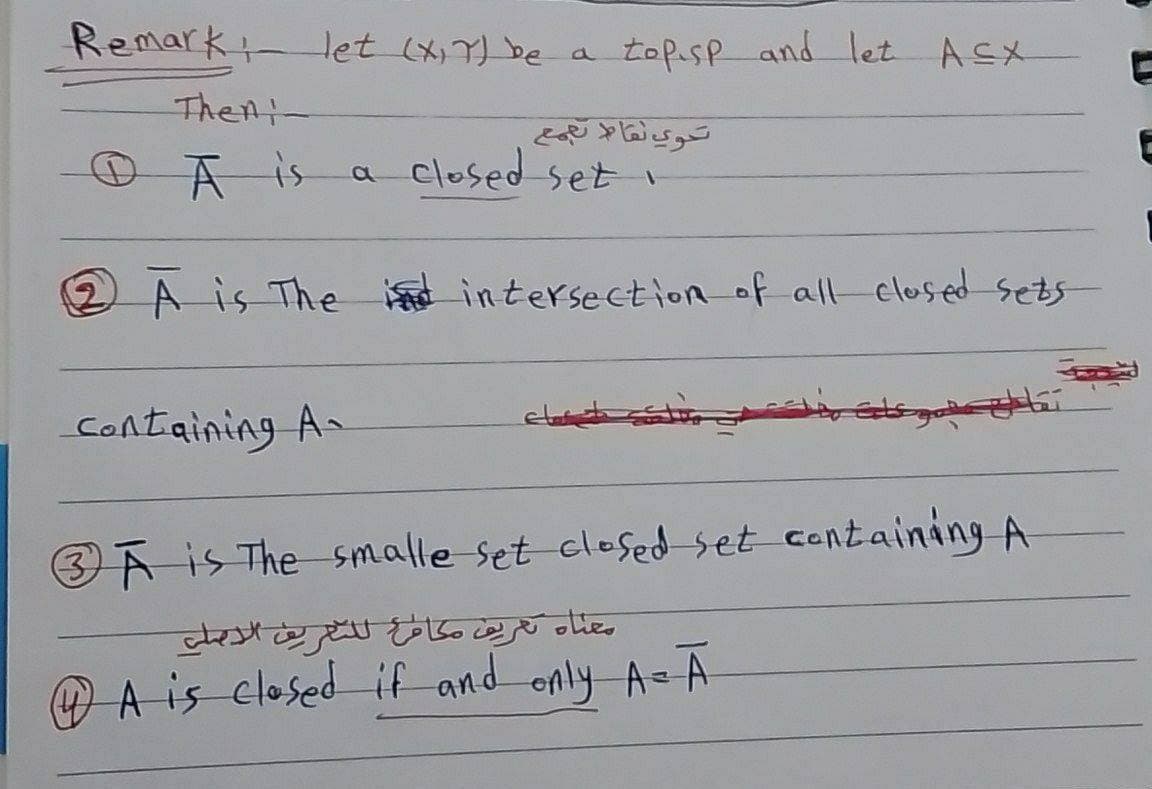 Remark:- let (X,τ) be a top.sp and let A⊆X
Then:-
تحوي نقاط تجمع
① A̅ is a closed set.
② A̅ is The intersection of all closed sets
containing A.
③ A̅ is The smalle set closed set containing A
معناه تعريف مكافئ للتعريف الاصلي
④ A is closed if and only A=A̅